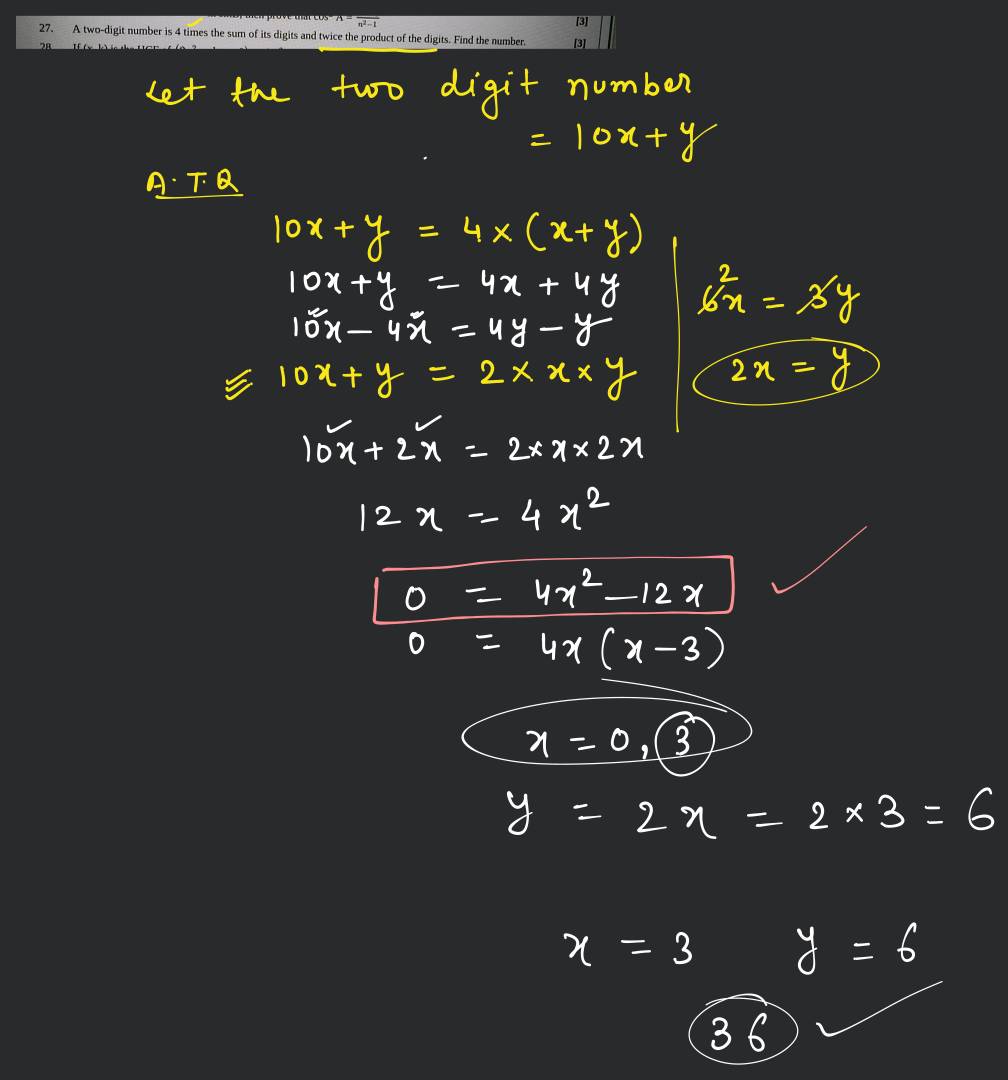 27. A two-digit number is 4 times the sum of its digits and twice the product of the digits. Find the number. [3]
28. [3]
Let the two digit number
= 10x + y
A.T.Q
10x + y = 4 × (x + y)
10x + y = 4x + 4y
10x - 4x = 4y - y
10x + y = 2 × x × y
6x = 3y
2
2x = y
10x + 2x = 2 × x × 2x
12x = 4x²
0 = 4x² - 12x
0 = 4x (x - 3)
x = 0, 3
y = 2x = 2 × 3 = 6
x = 3 y = 6
36